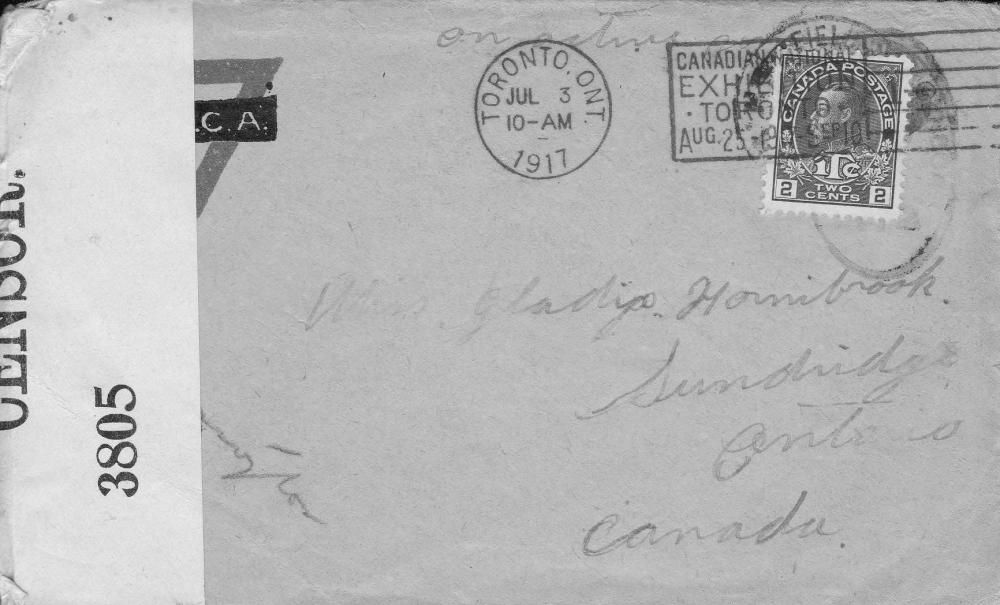 on active
TORONTO, ONT.
JUL 3
10-AM
1917
CANADIAN NATIONAL
EXHIBITION
TORONTO
AUG. 25-
SEP 10
FIELD
CANADA POSTAGE
1Tc
2 TWO CENTS 2
.C.A.
CENSOR.
3805
Miss Gladys Hornibrook.
Sundridge
Ontario
Canada.